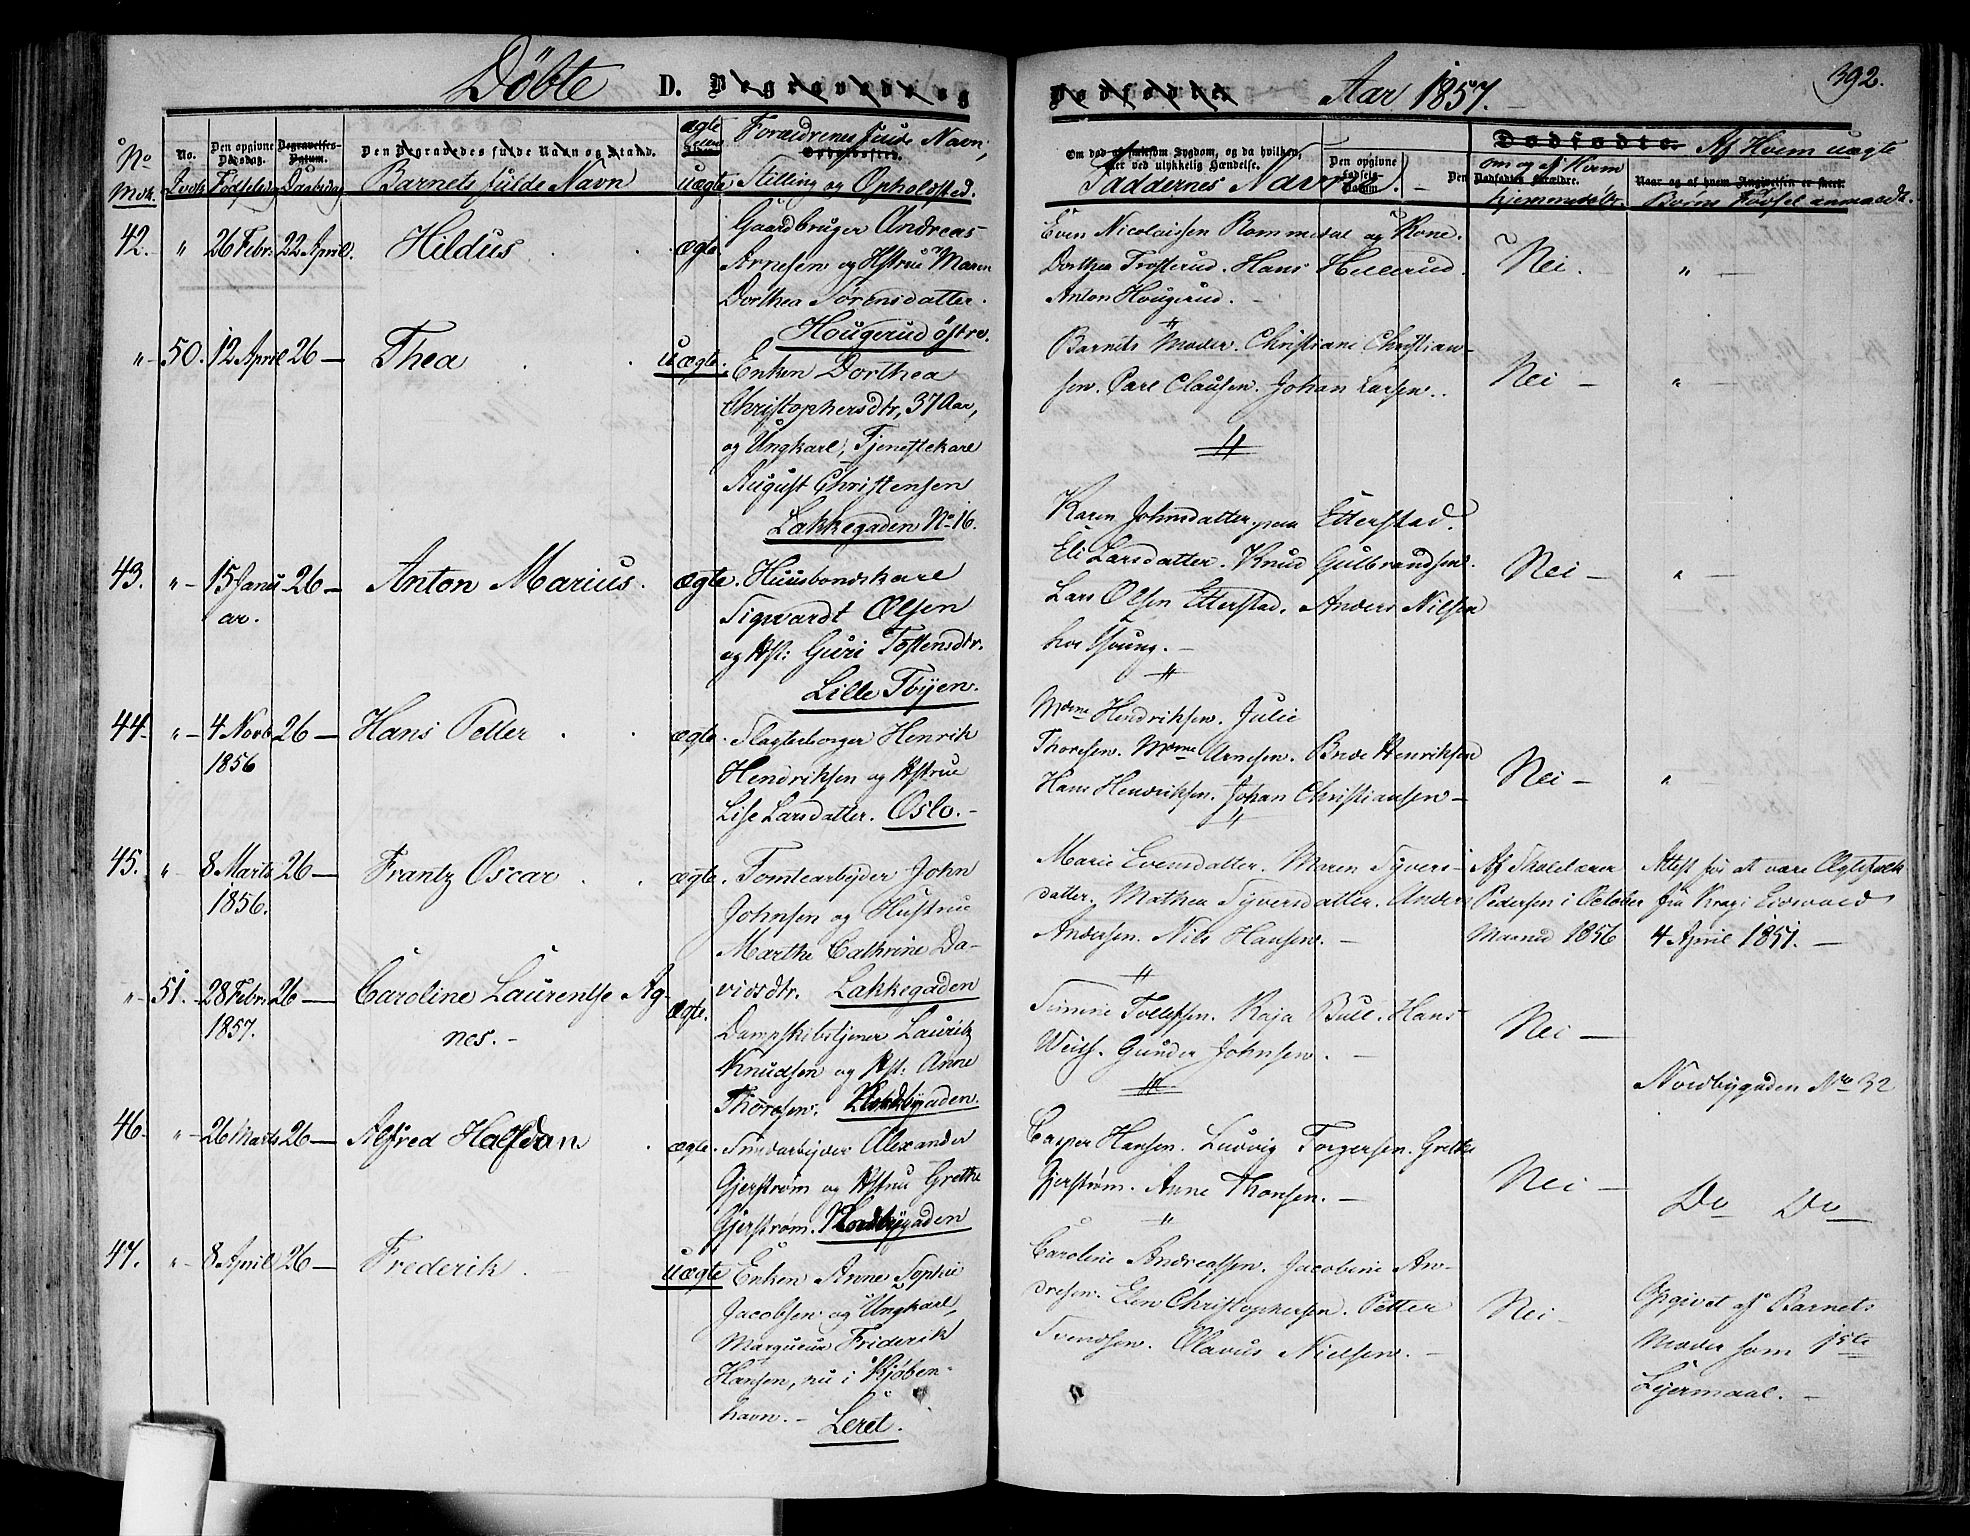 Döbte D. Begravede og Dødfødte. Aar 1857. 392.
No
Mdk.
No.
Qvdk
Den opgivne Dødsdag.
Fødselsdag
Begravelses-Datum.
Daabsdag
Den Begravedes fulde Navn og Stand.
Barnets fulde Navn
ægte
eller
uægte
Forældrenes fulde Navn,
Opholdssted.
Stilling og Opholdsted.
Om død af smitsom Sygdom, og da hvilken,
eller ved ulykkelig Hændelse.
Faddernes Navne.
Den opgivne Fødsels-Datum.
Dødfødte.
Den Dødfødtes Forældre.
om og af Hvem
hjemmedøbt.
Naar og af hvem Angivelsen er skeet.
Af Hvem uægte
Børns Fødsel anmeldt.
42. " 26 Febr. 22 April. Hildus ægte.
Gaardbruger Andreas
Arnesen og Hstrue Maren
Dorthea Sørensdatter.
Hougerud østre.
Even Nicolaisen Rommedal og Kone.
Dorthea Trosterud. Hans Hellerud.
Anton Hougerud. -
Nei. " -
" 50. 12 April 26 - Thea uægte.
Enken Dorthea
Christophersdtr, 37 Aar,
og Ungkarl, Tjenestekarl
August Christensen
Lakkegaden No 16.
Barnets Moder. Christiane Christian-
sen. Carl Clausen. Johan Larsen.
Nei - " -
43. " 15 Janu- 26 - Anton Marius. ægte.
ar.
Huusbondskarl
Sigvardt Olsen
og Hst: Guri Tostensdtr.
Lille Tøyen.
Karen Johnsdatter Etterstad.
Eli Larsdatter. Knud Gulbrandsen.
Lars Olsen Etterstad. Anders Nilsen
hos Young. -
Nei - " -
44. " 4 Novb 26 - Hans Petter ægte.
1856
Slagterborger Henrik
Hendriksen og Hstrue
Lise Larsdatter. Oslo. -
Mdme Hendriksen. Julie
Thoresen. Mdme Arnesen. Brede Henriksen
Hans Hendriksen. Johan Christiansen -
Nei - "
45. " 8 Marts 26 - Frantz Oscar ægte.
1856.
Tomtearbeider John
Johnsen og Hustrue
Marthe Cathrine Da-
vidsdtr. Lakkegaden
Marie Evensdatter. Maren Syvers-
datter. Mathea Syversdatter. Anders
Andersen. Nils Hansen. -
Af Skolelærer
Pedersen i October
Maaned 1856
Attest for at være Ægtefolk
fra Krag i Eidsvold
4 April 1851. -
" 51. 28 Febr. 26 - Caroline Laurentse Ag-
nes. -
1857.
ægte.
Dampskibstjener Lauritz
Knudsen og Hst: Anne
Thoresen. Nordbygaden.
Simine Tollefsen. Kaja Bull. Hans
Weith. Gunder Johnsen. -
Nei -
Nordbygaden No 32
46. " 26 Marts 26 - Alfred Halfdan ægte.
Smedarbeider Alexander
Gjerstrøm og Hstru Grethe
Gjerstrøm. Nordbygaden
Casper Hansen. Ludvig Torgersen. Grethe
Gjerstrøm. Anne Thonsen. -
Nei -
Do Do
47. " 8 April 26 - Frederik uægte
Enken Anne Sophie
Jacobsen og Ungkarl,
Marqueur Friderik
Hansen, nu i Kjøben-
havn. - Leret.
Caroline Andreassen. Jacobine An-
dresen. Elen Christophersen. Petter
Svendsen. Olavus Nielsen. -
Nei -
Opgivet af Barnets
Moder som 1ste
Leiermaal. -